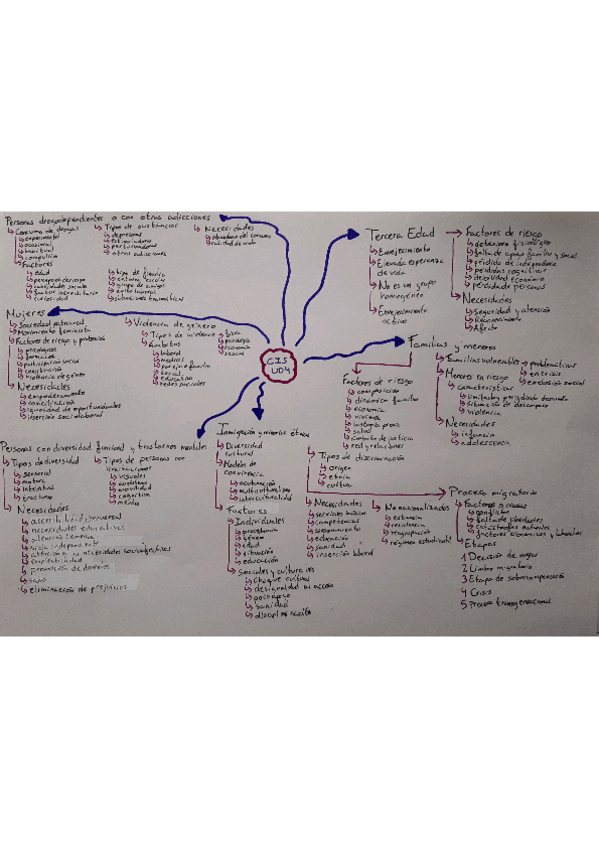 CIS
UD4
Personas drogodependientes o con otras adicciones
Consumo de drogas
experimental
ocasional
habitual
compulsivo
Factores
edad
curiosidad
tipo de familia
grupo de amigos
situaciones traumáticas
Tipos de sustancias
depresoras
estimuladoras
perturbadoras
otras adicciones
Necesidades
abandono del consumo
calidad de vida
Tercera Edad
Envejecimiento
Elevada esperanza
de vida
No es un grupo
homogéneo
Envejecimiento
activo
Factores de riesgo
deterioro fisiológico
falta de apoyo familiar y social
pérdida de independencia
pérdidas cognitivas
debilidad económica
pérdida de personas
Necesidades
Seguridad y atención
Reconocimiento
Afecto
Mujeres
Sociedad patriarcal
Movimiento feminista
Factores de riesgo y protección
psicológicos
formativos
participación social
conciliación
violencia de género
Necesidades
empoderamiento
conciliación
igualdad de oportunidades
inserción sociolaboral
Violencia de género
Tipos de violencia
física
psicológica
económica
sexual
Ámbitos
laboral
medios
pareja o familia
social
educativo
redes sociales
Familias y menores
Factores de riesgo
composición
dinámica familiar
economía
vivienda
salud
contacto de justicia
red y relaciones
Familias vulnerables
problemáticas
en crisis
exclusión social
Menores en riesgo
características
situación de desamparo
violencia
Necesidades
infancia
adolescencia
Personas con diversidad funcional y trastornos mentales
Tipos de diversidad
sensorial
motora
intelectual
trastorno
Tipos de personas con
limitaciones
visuales
auditivas
movilidad
cognitiva
Necesidades
accesibilidad universal
necesidades educativas
atención temprana
vida independiente
empleabilidad
promoción de derechos
salud
eliminación de prejuicios
Inmigración y minorías étnicas
Diversidad
cultural
Modelos de
convivencia
aculturación
multiculturalismo
interculturalidad
Factores
Individuales
procedencia
género
edad
situación
educación
Sociales y culturales
choque cultural
desigualdad en acceso
poco apoyo
sanidad
discriminación
Tipos de discriminación
origen
etnia
cultura
Necesidades
servicios básicos
competencias
asesoramiento
educación
sanidad
inserción laboral
No nacionalizados
estancia
residencia
reagrupación
régimen estudiantil
Proceso migratorio
Factores o causas
conflictos
falta de libertades
catástrofes naturales
factores económicos y laborales
Etapas
1 Decisión de migrar
2 Limbo migratorio
3 Etapa de sobrecompensación
4 Crisis
5 Proceso transgeneracional